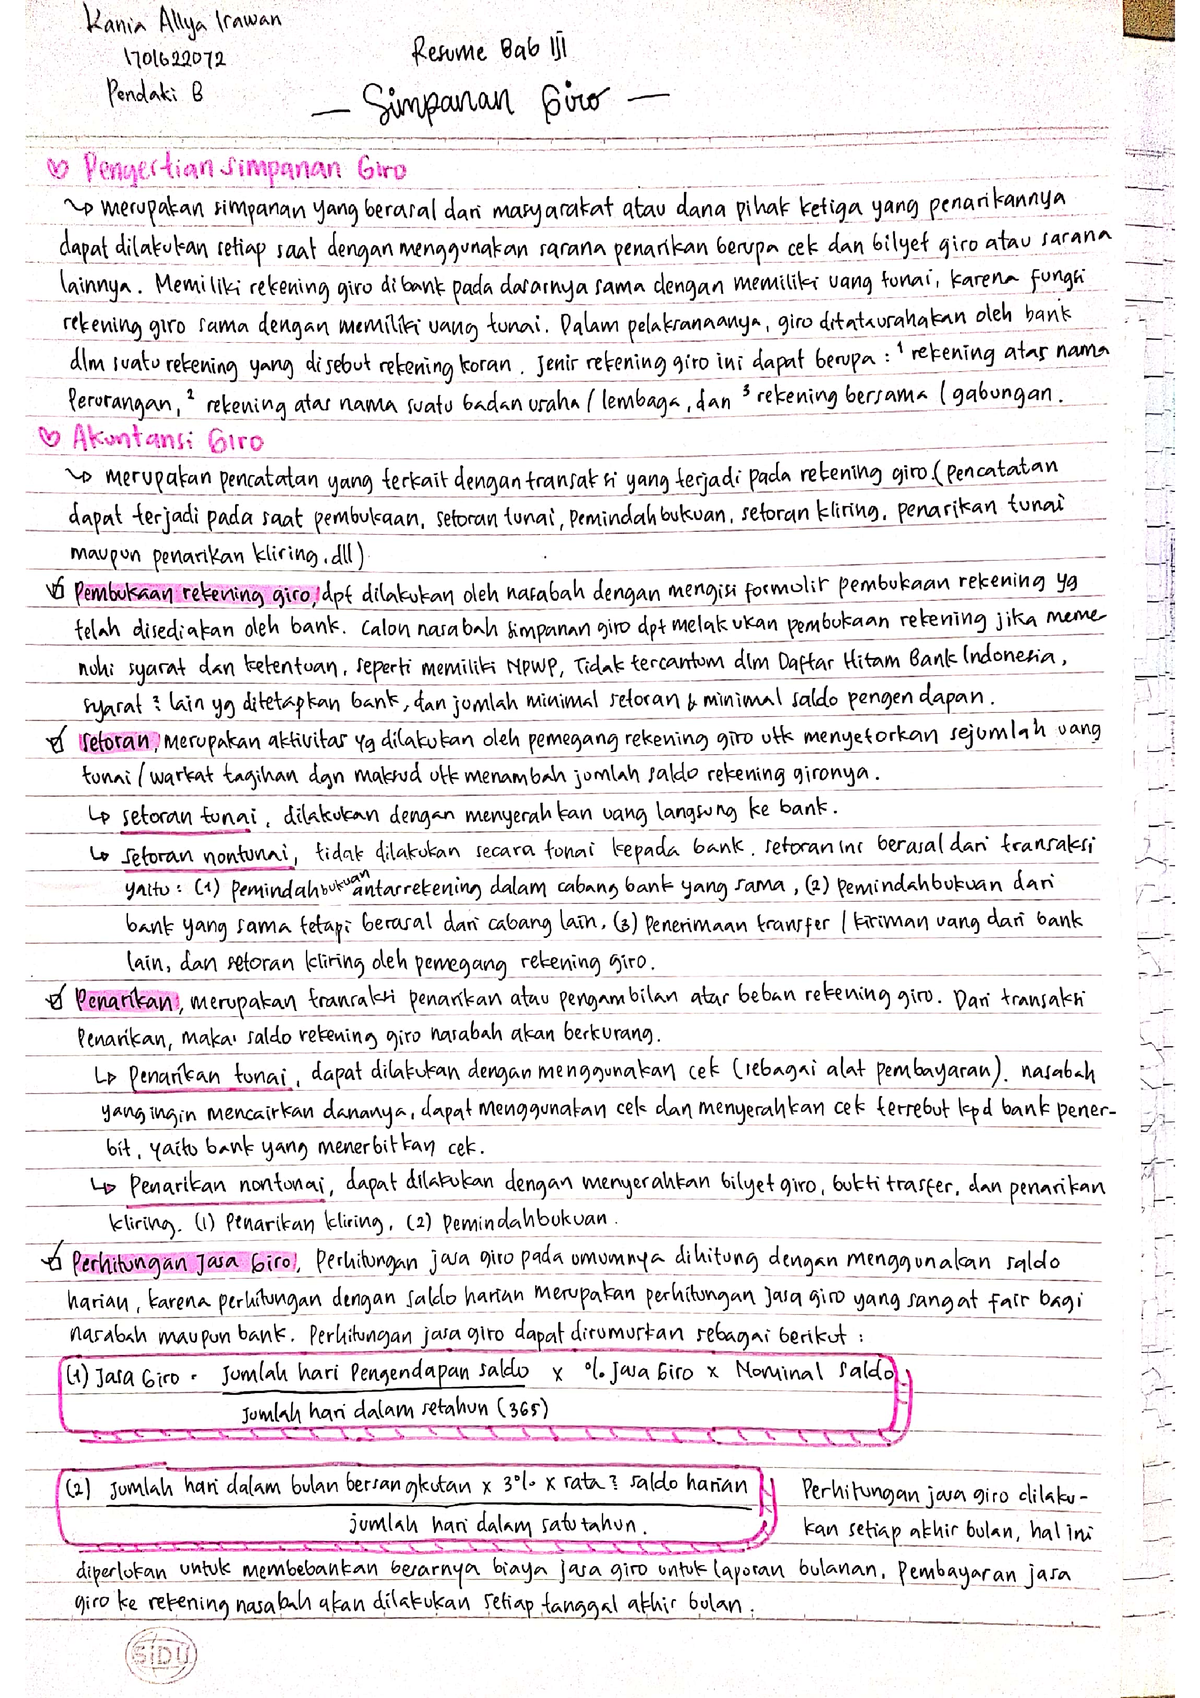 Kania Allya Irawan
1701622072
Pendaki B
Resume Bab III
— Simpanan Giro —
Pengertian Simpanan Giro
merupakan simpanan yang berasal dari masyarakat atau dana pihak ketiga yang penarikannya
dapat dilakukan setiap saat dengan menggunakan sarana penarikan berupa cek dan bilyet giro atau sarana
lainnya. Memiliki rekening giro di bank pada dasarnya sama dengan memiliki uang tunai, karena fungsi
rekening giro sama dengan memiliki uang tunai. Dalam pelaksanaanya, giro ditatausahakan oleh bank
dlm suatu rekening yang disebut rekening koran. Jenis rekening giro ini dapat berupa : ¹ rekening atas nama
Perorangan, ² rekening atas nama suatu badan usaha / lembaga, dan ³ rekening bersama / gabungan.
Akuntansi Giro
merupakan pencatatan yang terkait dengan transaksi yang terjadi pada rekening giro. (pencatatan
dapat terjadi pada saat pembukaan, setoran tunai, pemindahbukuan, setoran kliring, penarikan tunai
maupun penarikan kliring, dll)
Pembukaan rekening giro, dpt dilakukan oleh nasabah dengan mengisi formulir pembukaan rekening yg
telah disediakan oleh bank. Calon nasabah simpanan giro dpt melakukan pembukaan rekening jika meme-
nuhi syarat dan ketentuan, seperti memiliki NPWP, Tidak tercantum dlm Daftar Hitam Bank Indonesia,
syarat ² lain yg ditetapkan bank, dan jumlah minimal setoran & minimal saldo pengendapan.
Setoran, merupakan aktivitas yg dilakukan oleh pemegang rekening giro utk menyetorkan sejumlah uang
tunai / warkat tagihan dgn maksud utk menambah jumlah saldo rekening gironya.
↳ setoran tunai, dilakukan dengan menyerahkan uang langsung ke bank.
↳ setoran nontunai, tidak dilakukan secara tunai kepada bank. setoran ini berasal dari transaksi
yaitu : (1) pemindahbukuan antarrekening dalam cabang bank yang sama, (2) pemindahbukuan dari
bank yang sama tetapi berasal dari cabang lain, (3) Penerimaan transfer / kiriman uang dari bank
lain, dan setoran kliring oleh pemegang rekening giro.
Penarikan, merupakan transaksi penarikan atau pengambilan atas beban rekening giro. Dari transaksi
Penarikan, maka saldo rekening giro nasabah akan berkurang.
↳ Penarikan tunai, dapat dilakukan dengan menggunakan cek (sebagai alat pembayaran). nasabah
yang ingin mencairkan dananya, dapat menggunakan cek dan menyerahkan cek tersebut kpd bank pener-
bit, yaitu bank yang menerbitkan cek.
↳ Penarikan nontunai, dapat dilakukan dengan menyerahkan bilyet giro, bukti trasfer, dan penarikan
kliring. (1) Penarikan kliring, (2) Pemindahbukuan.
Perhitungan Jasa Giro, Perhitungan jasa giro pada umumnya dihitung dengan menggunakan saldo
harian, karena perhitungan dengan saldo harian merupakan perhitungan jasa giro yang sangat fair bagi
nasabah maupun bank. Perhitungan jasa giro dapat dirumuskan sebagai berikut :
(1) Jasa Giro = Jumlah hari Pengendapan saldo x % Jasa Giro x Nominal Saldo
Jumlah hari dalam setahun (365)
(2) Jumlah hari dalam bulan bersangkutan x 3% x rata ² saldo harian
jumlah hari dalam satu tahun.
Perhitungan jasa giro dilaku-
kan setiap akhir bulan, hal ini
diperlukan untuk membebankan besarnya biaya jasa giro untuk laporan bulanan, Pembayaran jasa
giro ke rekening nasabah akan dilakukan setiap tanggal akhir bulan.
SIDU